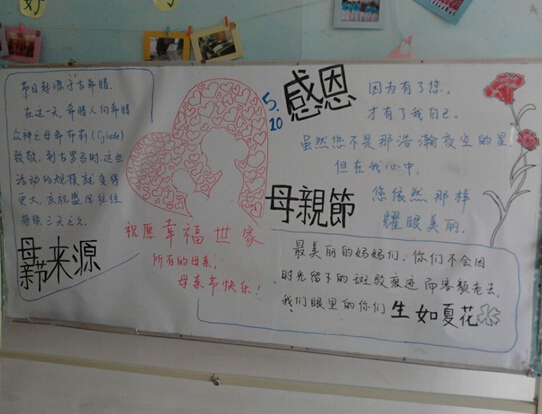 节日起源于古希腊.
在这一天,希腊人向希腊
众神之母赫布莉(Cybele)
致敬.到古罗马时,这些
活动的规模就变得
更大,庆祝盛况往往
持续三天之久.
母亲节来源
祝愿幸福世家
所有的母亲,
母亲节快乐!
5.10
感恩
母親節
因为有了您,
才有了我自己.
虽然您不是那浩瀚夜空的星
但在我心中,
您依然那样
耀眼美丽.
最美丽的妈妈们,你们不会因
时光留下的斑驳痕迹而容颜老去,
我们眼里的你们生如夏花